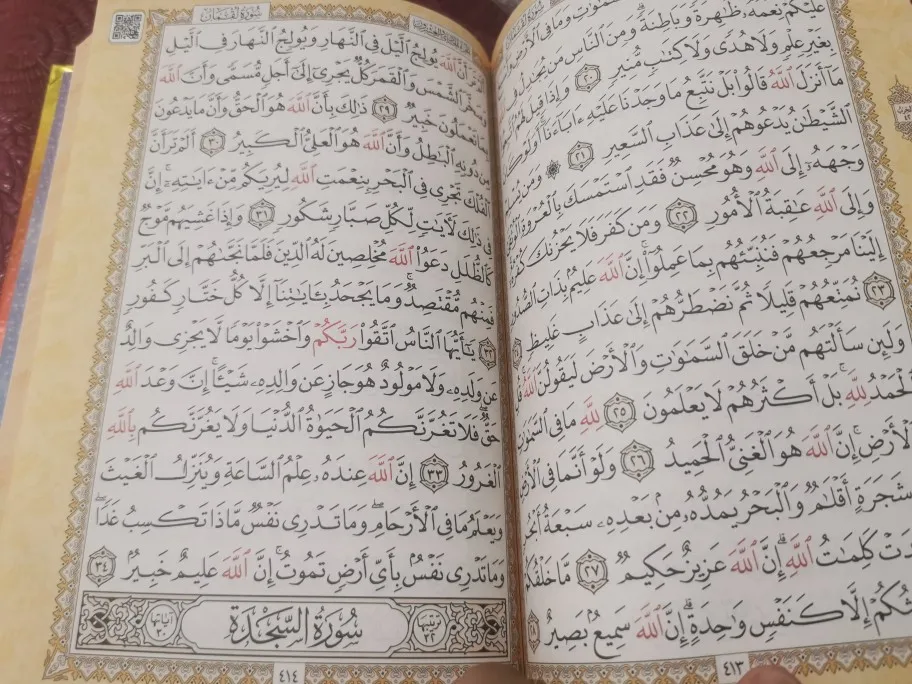 عَلَيْكُمْ نِعَمَهُۥ ظَٰهِرَةً وَبَاطِنَةً وَمِنَ ٱلنَّاسِ مَن يُجَٰدِلُ فِى
بِغَيْرِ عِلْمٍ وَلَا هُدًى وَلَا كِتَٰبٍ مُّنِيرٍ ٢٠ وَإِذَا قِيلَ لَهُمُ
مَآ أَنزَلَ ٱللَّهُ قَالُوا۟ بَلْ نَتَّبِعُ مَا وَجَدْنَا عَلَيْهِ ءَابَآءَنَآ أَوَلَوْ
ٱلشَّيْطَٰنُ يَدْعُوهُمْ إِلَىٰ عَذَابِ ٱلسَّعِيرِ ٢١ ۞ وَمَن
وَجْهَهُۥٓ إِلَى ٱللَّهِ وَهُوَ مُحْسِنٌ فَقَدِ ٱسْتَمْسَكَ بِٱلْعُرْوَةِ
وَإِلَى ٱللَّهِ عَٰقِبَةُ ٱلْأُمُورِ ٢٢ وَمَن كَفَرَ فَلَا يَحْزُنكَ كُفْرُهُۥٓ
إِلَيْنَا مَرْجِعُهُمْ فَنُنَبِّئُهُم بِمَا عَمِلُوٓا۟ إِنَّ ٱللَّهَ عَلِيمٌۢ بِذَاتِ ٱلصُّدُورِ
٢٣ نُمَتِّعُهُمْ قَلِيلًا ثُمَّ نَضْطَرُّهُمْ إِلَىٰ عَذَابٍ غَلِيظٍ
وَلَئِن سَأَلْتَهُم مَّنْ خَلَقَ ٱلسَّمَٰوَٰتِ وَٱلْأَرْضَ لَيَقُولُنَّ ٱللَّهُ
ٱلْحَمْدُ لِلَّهِ بَلْ أَكْثَرُهُمْ لَا يَعْلَمُونَ ٢٥ لِلَّهِ مَا فِى ٱلسَّمَٰوَٰتِ
ٱلْأَرْضِ إِنَّ ٱللَّهَ هُوَ ٱلْغَنِىُّ ٱلْحَمِيدُ ٢٦ وَلَوْ أَنَّمَا فِى ٱلْأَرْضِ
شَجَرَةٍ أَقْلَٰمٌ وَٱلْبَحْرُ يَمُدُّهُۥ مِنۢ بَعْدِهِۦ سَبْعَةُ
كَلِمَٰتُ ٱللَّهِ إِنَّ ٱللَّهَ عَزِيزٌ حَكِيمٌ ٢٧ مَّا خَلْقُكُمْ
إِلَّا كَنَفْسٍ وَٰحِدَةٍ إِنَّ ٱللَّهَ سَمِيعٌۢ بَصِيرٌ
٤١٣
سُورَةُ لُقْمَانَ
أَنَّ ٱللَّهَ يُولِجُ ٱلَّيْلَ فِى ٱلنَّهَارِ وَيُولِجُ ٱلنَّهَارَ فِى ٱلَّيْلِ
وَسَخَّرَ ٱلشَّمْسَ وَٱلْقَمَرَ كُلٌّ يَجْرِىٓ إِلَىٰٓ أَجَلٍ مُّسَمًّى وَأَنَّ ٱللَّهَ
بِمَا تَعْمَلُونَ خَبِيرٌ ٢٩ ذَٰلِكَ بِأَنَّ ٱللَّهَ هُوَ ٱلْحَقُّ وَأَنَّ مَا يَدْعُونَ
مِن دُونِهِ ٱلْبَٰطِلُ وَأَنَّ ٱللَّهَ هُوَ ٱلْعَلِىُّ ٱلْكَبِيرُ ٣٠ أَلَمْ تَرَ أَنَّ
ٱلْفُلْكَ تَجْرِى فِى ٱلْبَحْرِ بِنِعْمَتِ ٱللَّهِ لِيُرِيَكُم مِّنْ ءَايَٰتِهِۦٓ إِنَّ
فِى ذَٰلِكَ لَءَايَٰتٍ لِّكُلِّ صَبَّارٍ شَكُورٍ ٣١ وَإِذَا غَشِيَهُم مَّوْجٌ
كَٱلظُّلَلِ دَعَوُا۟ ٱللَّهَ مُخْلِصِينَ لَهُ ٱلدِّينَ فَلَمَّا نَجَّىٰهُمْ إِلَى ٱلْبَرِّ
فَمِنْهُم مُّقْتَصِدٌ وَمَا يَجْحَدُ بِـَٔايَٰتِنَآ إِلَّا كُلُّ خَتَّارٍ كَفُورٍ
٣٢ يَٰٓأَيُّهَا ٱلنَّاسُ ٱتَّقُوا۟ رَبَّكُمْ وَٱخْشَوْا۟ يَوْمًا لَّا يَجْزِى وَالِدٌ
عَن وَلَدِهِۦ وَلَا مَوْلُودٌ هُوَ جَازٍ عَن وَالِدِهِۦ شَيْـًٔا إِنَّ وَعْدَ ٱللَّهِ
حَقٌّ فَلَا تَغُرَّنَّكُمُ ٱلْحَيَوٰةُ ٱلدُّنْيَا وَلَا يَغُرَّنَّكُم بِٱللَّهِ
ٱلْغَرُورُ ٣٣ إِنَّ ٱللَّهَ عِندَهُۥ عِلْمُ ٱلسَّاعَةِ وَيُنَزِّلُ ٱلْغَيْثَ
وَيَعْلَمُ مَا فِى ٱلْأَرْحَامِ وَمَا تَدْرِى نَفْسٌ مَّاذَا تَكْسِبُ غَدًا
وَمَا تَدْرِى نَفْسٌۢ بِأَىِّ أَرْضٍ تَمُوتُ إِنَّ ٱللَّهَ عَلِيمٌ خَبِيرٌۢ ٣٤
تَرْتِيبُهَا ٣٢ سُورَةُ السَّجْدَةِ آيَاتُهَا ٣٠
٤١٤